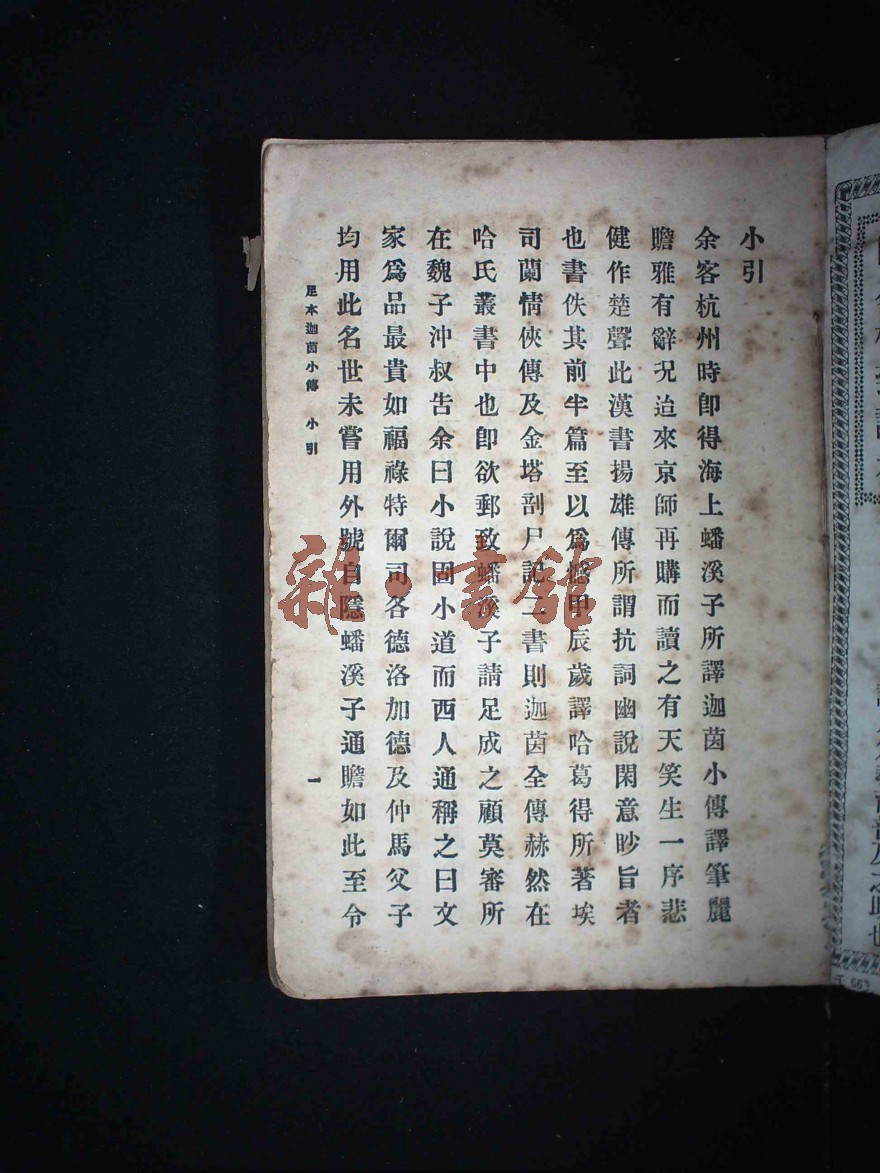 小引
余客杭州時卽得海上蟠溪子所譯迦茵小傳譯筆麗
贍雅有辭況迨來京師再購而讀之有天笑生一序悲
健作楚聲此漢書揚雄傳所謂抗詞幽說閑意眇旨者
也書佚其前半篇至以爲憾甲辰歲譯哈葛得所著埃
司蘭情俠傳及金塔剖尸記二書則迦茵全傳赫然在
哈氏叢書中也卽欲郵致蟠溪子請足成之顧莫審所
在魏子沖叔告余曰小說固小道而西人通稱之曰文
家爲品最貴如福祿特爾司各德洛加德及仲馬父子
均用此名世未嘗用外號自隱蟠溪子通贍如此至令
足本迦茵小傳 小引
一
雜書館